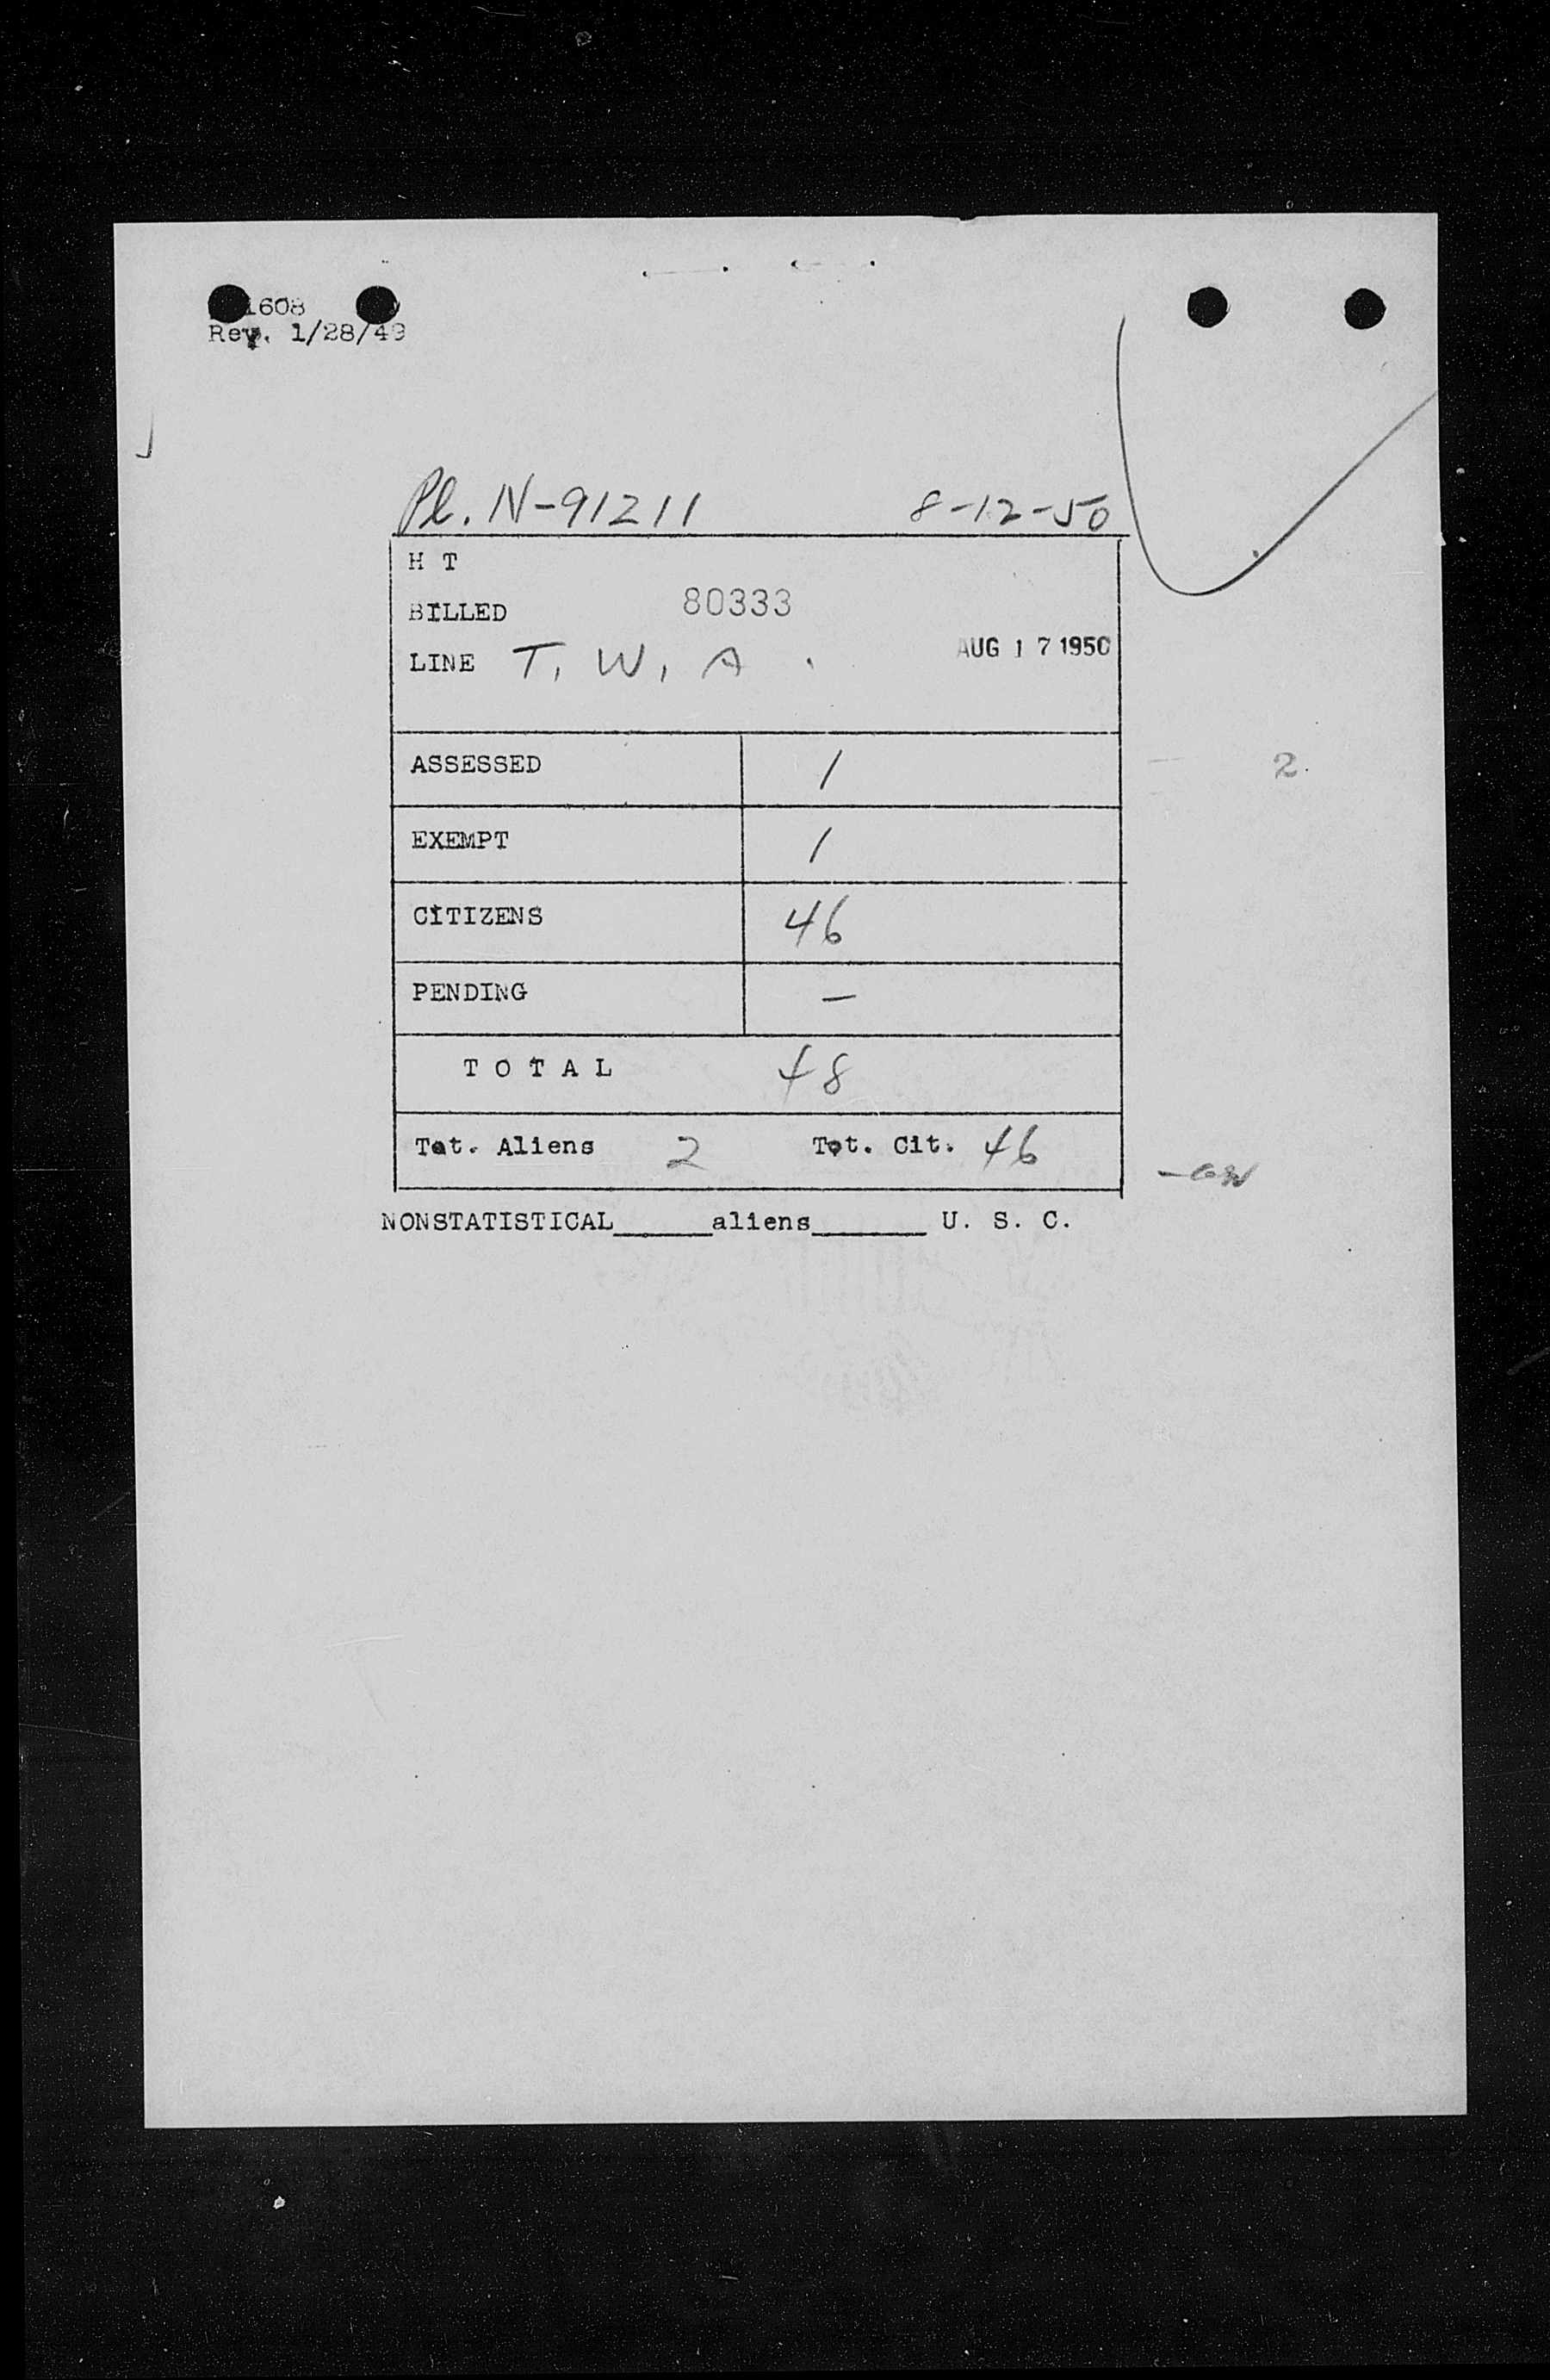 1608
Rev. 1/28/49
Pl. N-91211 8-12-50
H T
BILLED 80333
LINE T. W. A. AUG 17 1950
ASSESSED 1 2.
EXEMPT 1
CITIZENS 46
PENDING –
T O T A L 48
Tot. Aliens 2 Tot. Cit. 46
NONSTATISTICAL______aliens_______ U. S. C.